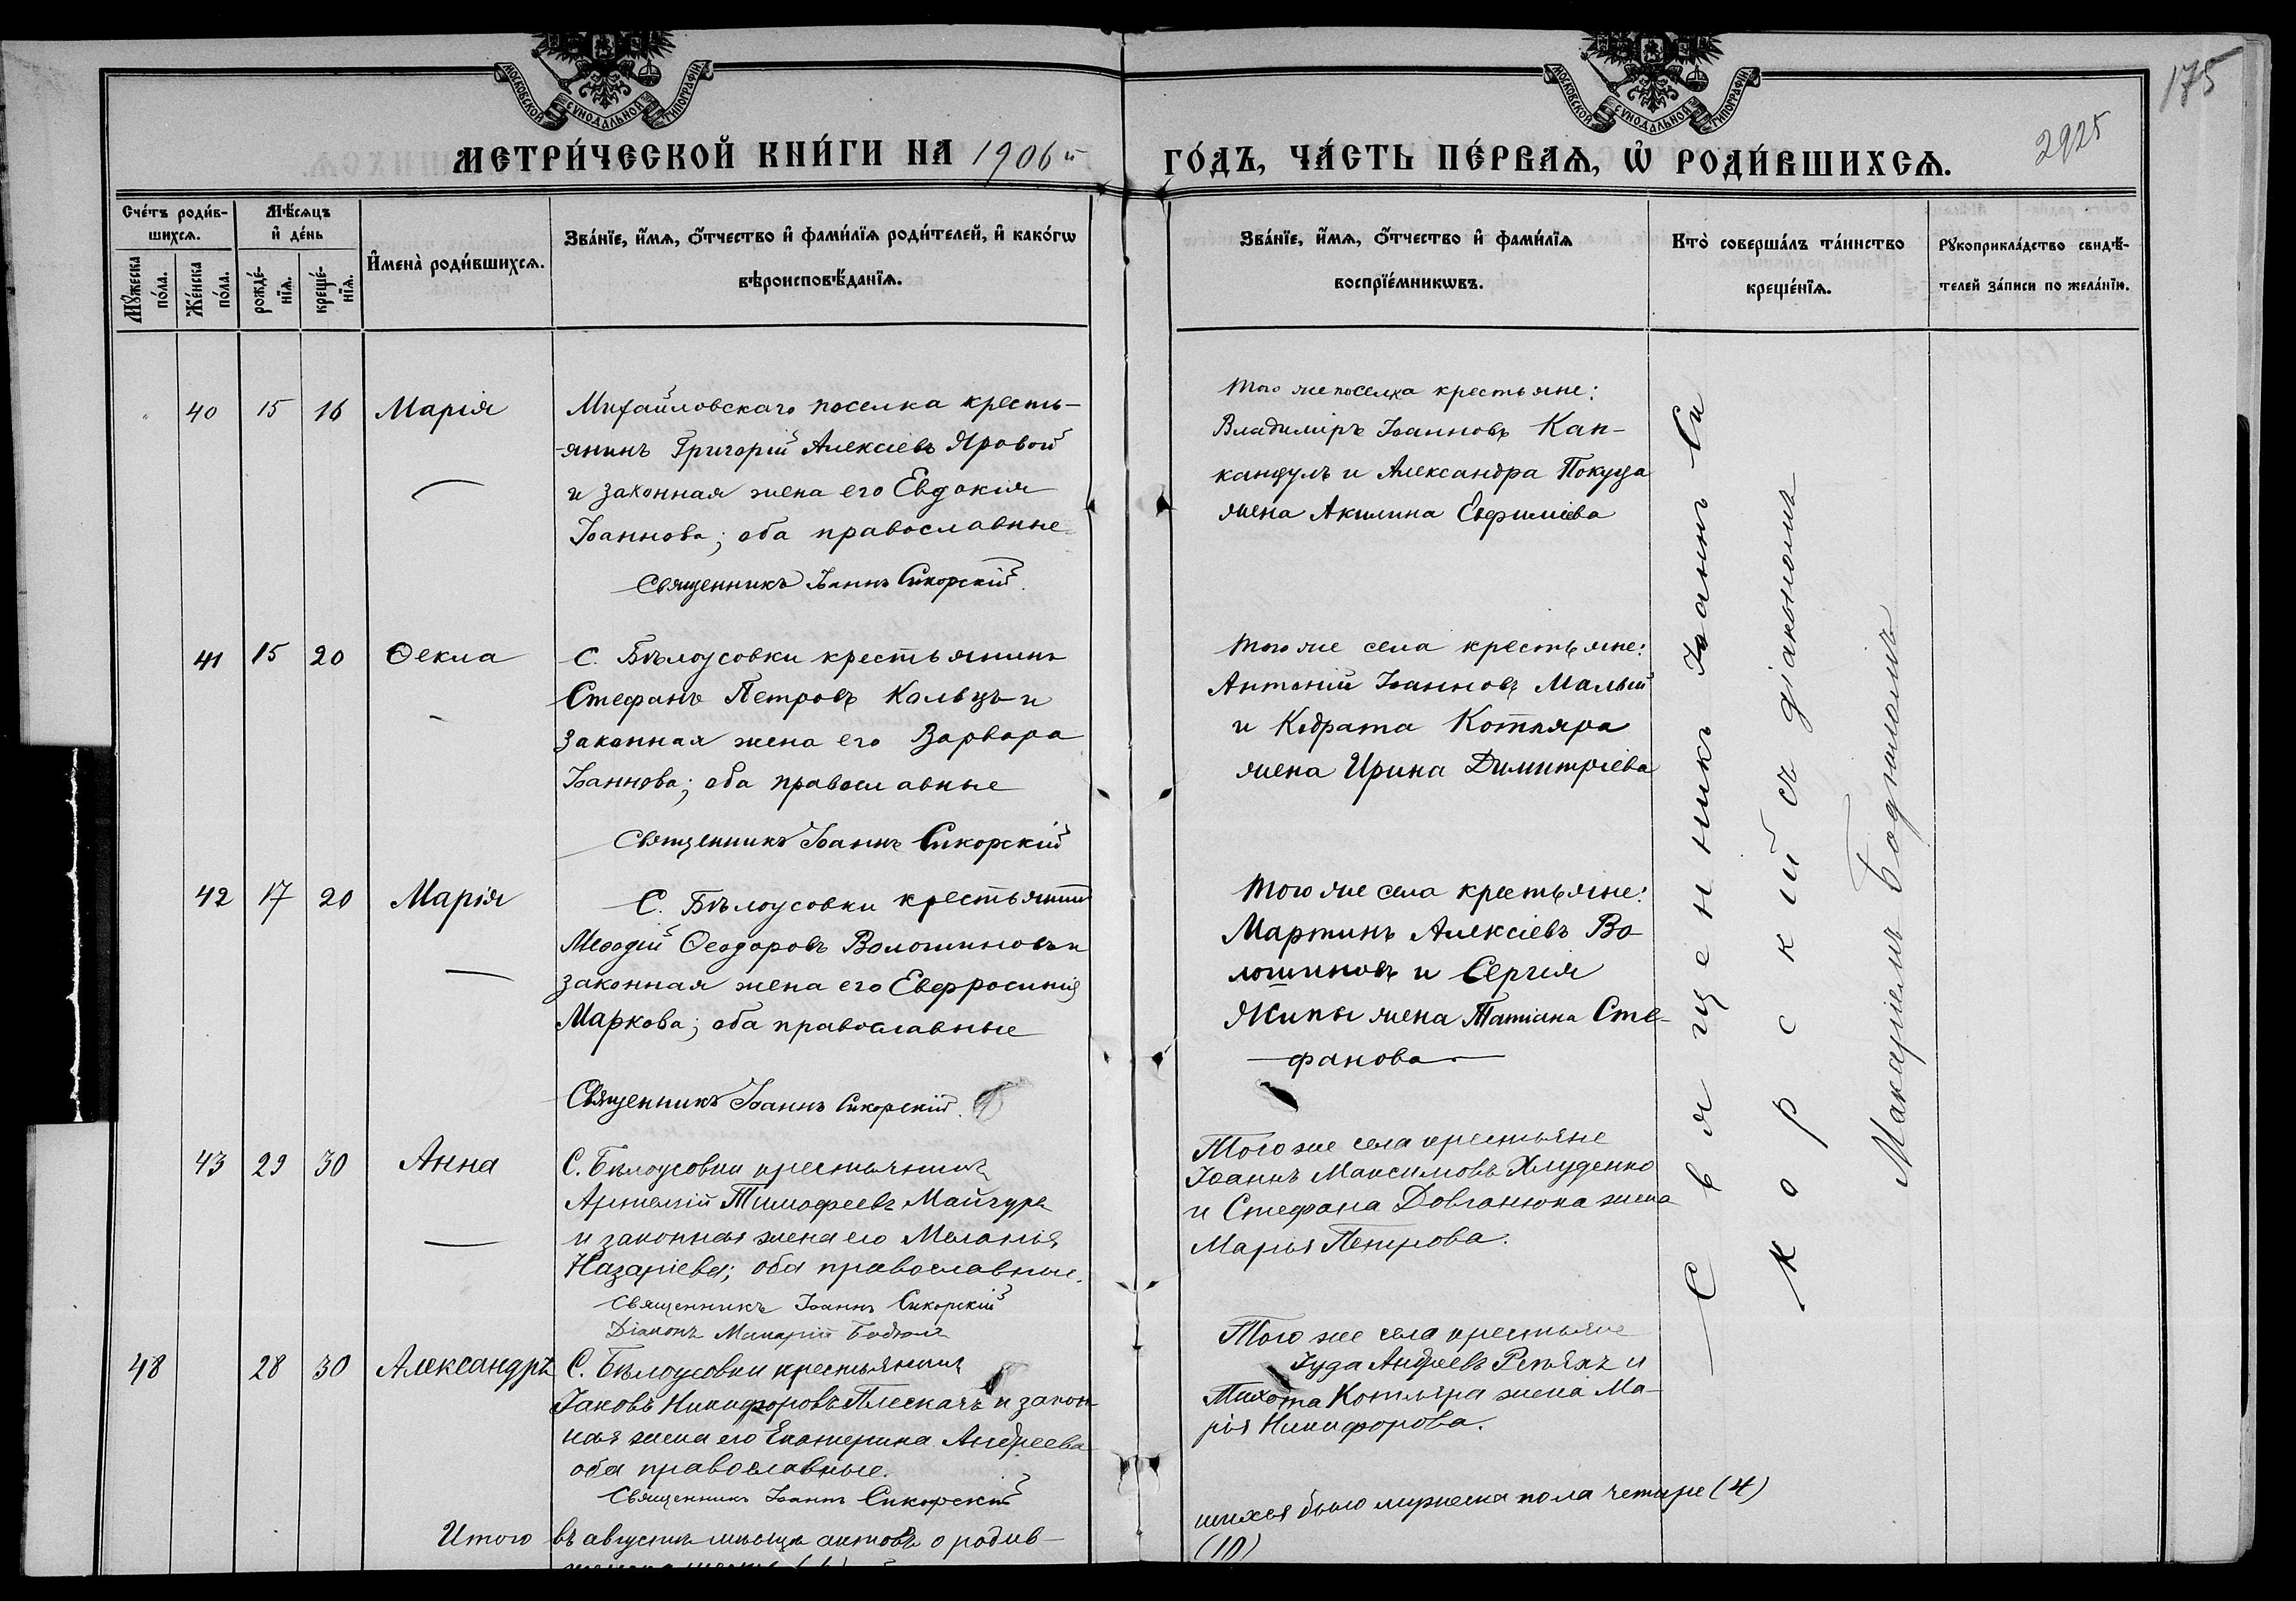 МОСКОВСКОЙ СѴНОДАЛЬНОЙ ТИПОГРАФІИ
МОСКОВСКОЙ СѴНОДАЛЬНОЙ ТИПОГРАФІИ
175
2925
МЕТРИ́ЧЕСКОЙ КНИ́ГИ НА 1906й
ГО́ДЪ, ЧА́СТЬ ПЕ́РВАѦ, Ѽ РОДИ́ВШИХСѦ.
Сче́тъ роди́в-
шихсѧ.
Мѣ́сѧцъ
и҆ де́нь
Мꙋ́жеска
по́ла.
Же́нска
по́ла.
рожде́-
нїѧ.
креще́-
нїѧ.
И҆мена̀ роди́вшихсѧ.
Зва́нїе, и҆́мѧ, ѻ҆́тчество и҆ фами́лїѧ роди́телей, и҆ како́гѡ
вѣроисповѣ́данїѧ.
Зва́нїе, и҆́мѧ, ѻ҆́тчество и҆ фами́лїѧ
воспрїе́мникѡвъ.
Кто̀ соверша́лъ та́инство
креще́нїѧ.
Рꙋкоприкла́дство свидѣ́-
телей за́писи по жела́нїю.
40 15 16 Марія
Михайловскаго поселка кресть-
-янинъ Григорій Алексіевъ Яровой
и законная жена его Евдокія
Іоаннова; оба православные
Священникъ Іоаннъ Сикорскій.
Того же поселка крестьяне:
Владиміръ Іоанновъ Кап-
канцулъ и Александра Покуца
жена Акилина Евфиміева
41 15 20 Ѳекла
С. Бѣлоусовки крестьянинъ
Стефанъ Петровъ Кольцъ и
законная жена его Варвара
Іоаннова; оба православные
Священникъ Іоаннъ Сикорскій
Того же села крестьяне:
Антоній Іоанновъ Малый
и Кодрата Котляра
жена Ирина Димитріева
42 17 20 Марія
С. Бѣлоусовки крестьянинъ
Меѳодій Ѳеодоровъ Волошиновъ и
законная жена его Евфросинія
Маркова; оба православные
Священникъ Іоаннъ Сикорскій.
Того же села крестьяне:
Мартинъ Алексіевъ Во-
лошиновъ и Сергія
Жипы жена Татіана Сте-
фанова
43 29 30 Анна
С. Бѣлоусовки крестьянинъ
Артемій Тимофеевъ Майгура
и законная жена его Меланія
Назаріева; оба православные.
Священникъ Іоаннъ Сикорскій
Діаконъ Макарій Боднаръ
Того же села крестьяне
Іоаннъ Максимовъ Хлуденко
и Стефана Довганюка жена
Марія Петрова.
48 28 30 Александръ
С. Бѣлоусовки крестьянинъ
Іаковъ Никифоровъ Плескачъ и закон
ная жена его Екатерина Андреева
оба православные.
Священникъ Іоаннъ Сикорскій
Того же села крестьяне
Іуда Андреевъ Репяхъ и
Котляра жена Ма-
рія Никифорова.
Священникъ Іоаннъ Си
корскій съ діакономъ
Макаріемъ
Итого въ августѣ мѣсяцѣ актовъ о родив-
шихся было мужеска пола четыре (4)
(10)